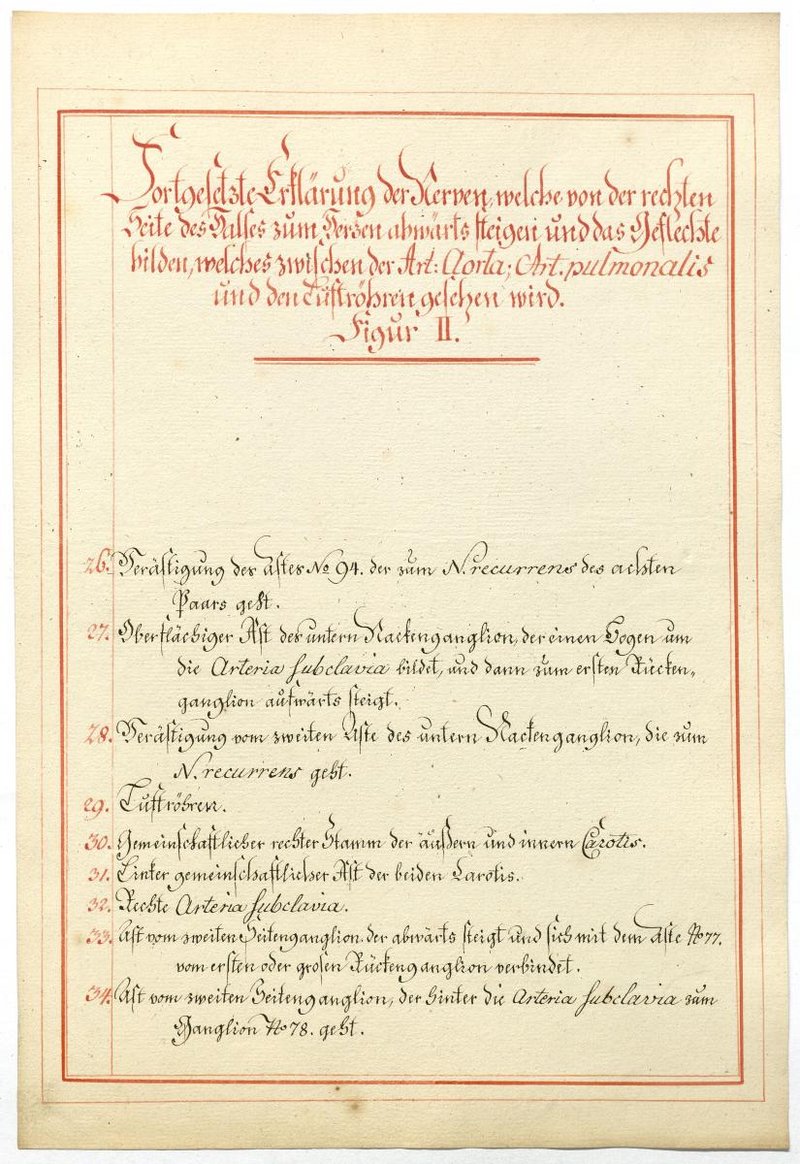 Fortgesetzte Erklärung der Nerven, welche von der rechten
Seite des Halses zum Herzen abwärts steigen und das Geflechte
bilden, welches zwischen der Art: Aorta; Art. pulmonalis
und den Luftröhren gesehen wird.
Figur II.
26. Verästigung des Astes No 94. der zum N. recurrens des achten
Paars geht.
27. Oberflächiger Ast des untern Nackenganglion, der einen Bogen um
die Arteria subclavia bildet, und dann zum ersten Rücken„
ganglion aufwärts steigt.
28. Verästigung vom zweiten Aste des untern Nackenganglion, die zum
N. recurrens geht.
29. Luftröhren.
30. Gemeinschaftlicher rechter Stamm der äußern und innern Carotis.
31. Linker gemeinschaftlicher Ast der beiden Carotis.
32. Rechte Arteria subclavia.
33. Ast vom zweiten Seitenganglion der abwärts steigt und sich mit dem Aste No 77.
vom ersten oder grosen Rückenganglion verbindet.
34. Ast vom zweiten Seitenganglion, der hinter die Arteria subclavia zum
Ganglion No 78. geht.